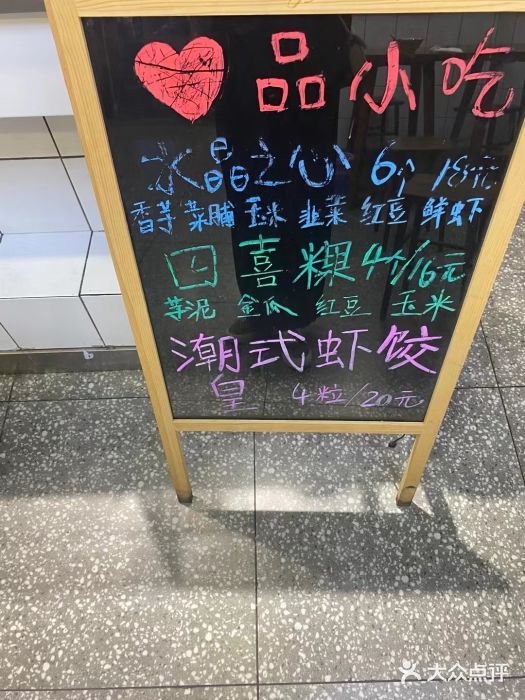 品小吃
水晶之心 6个 18元
香芋 菜脯 玉米 韭菜 红豆 鲜虾
四喜粿 4个/16元
芋泥 金瓜 红豆 玉米
潮式虾饺
皇 4粒/20元
大众点评